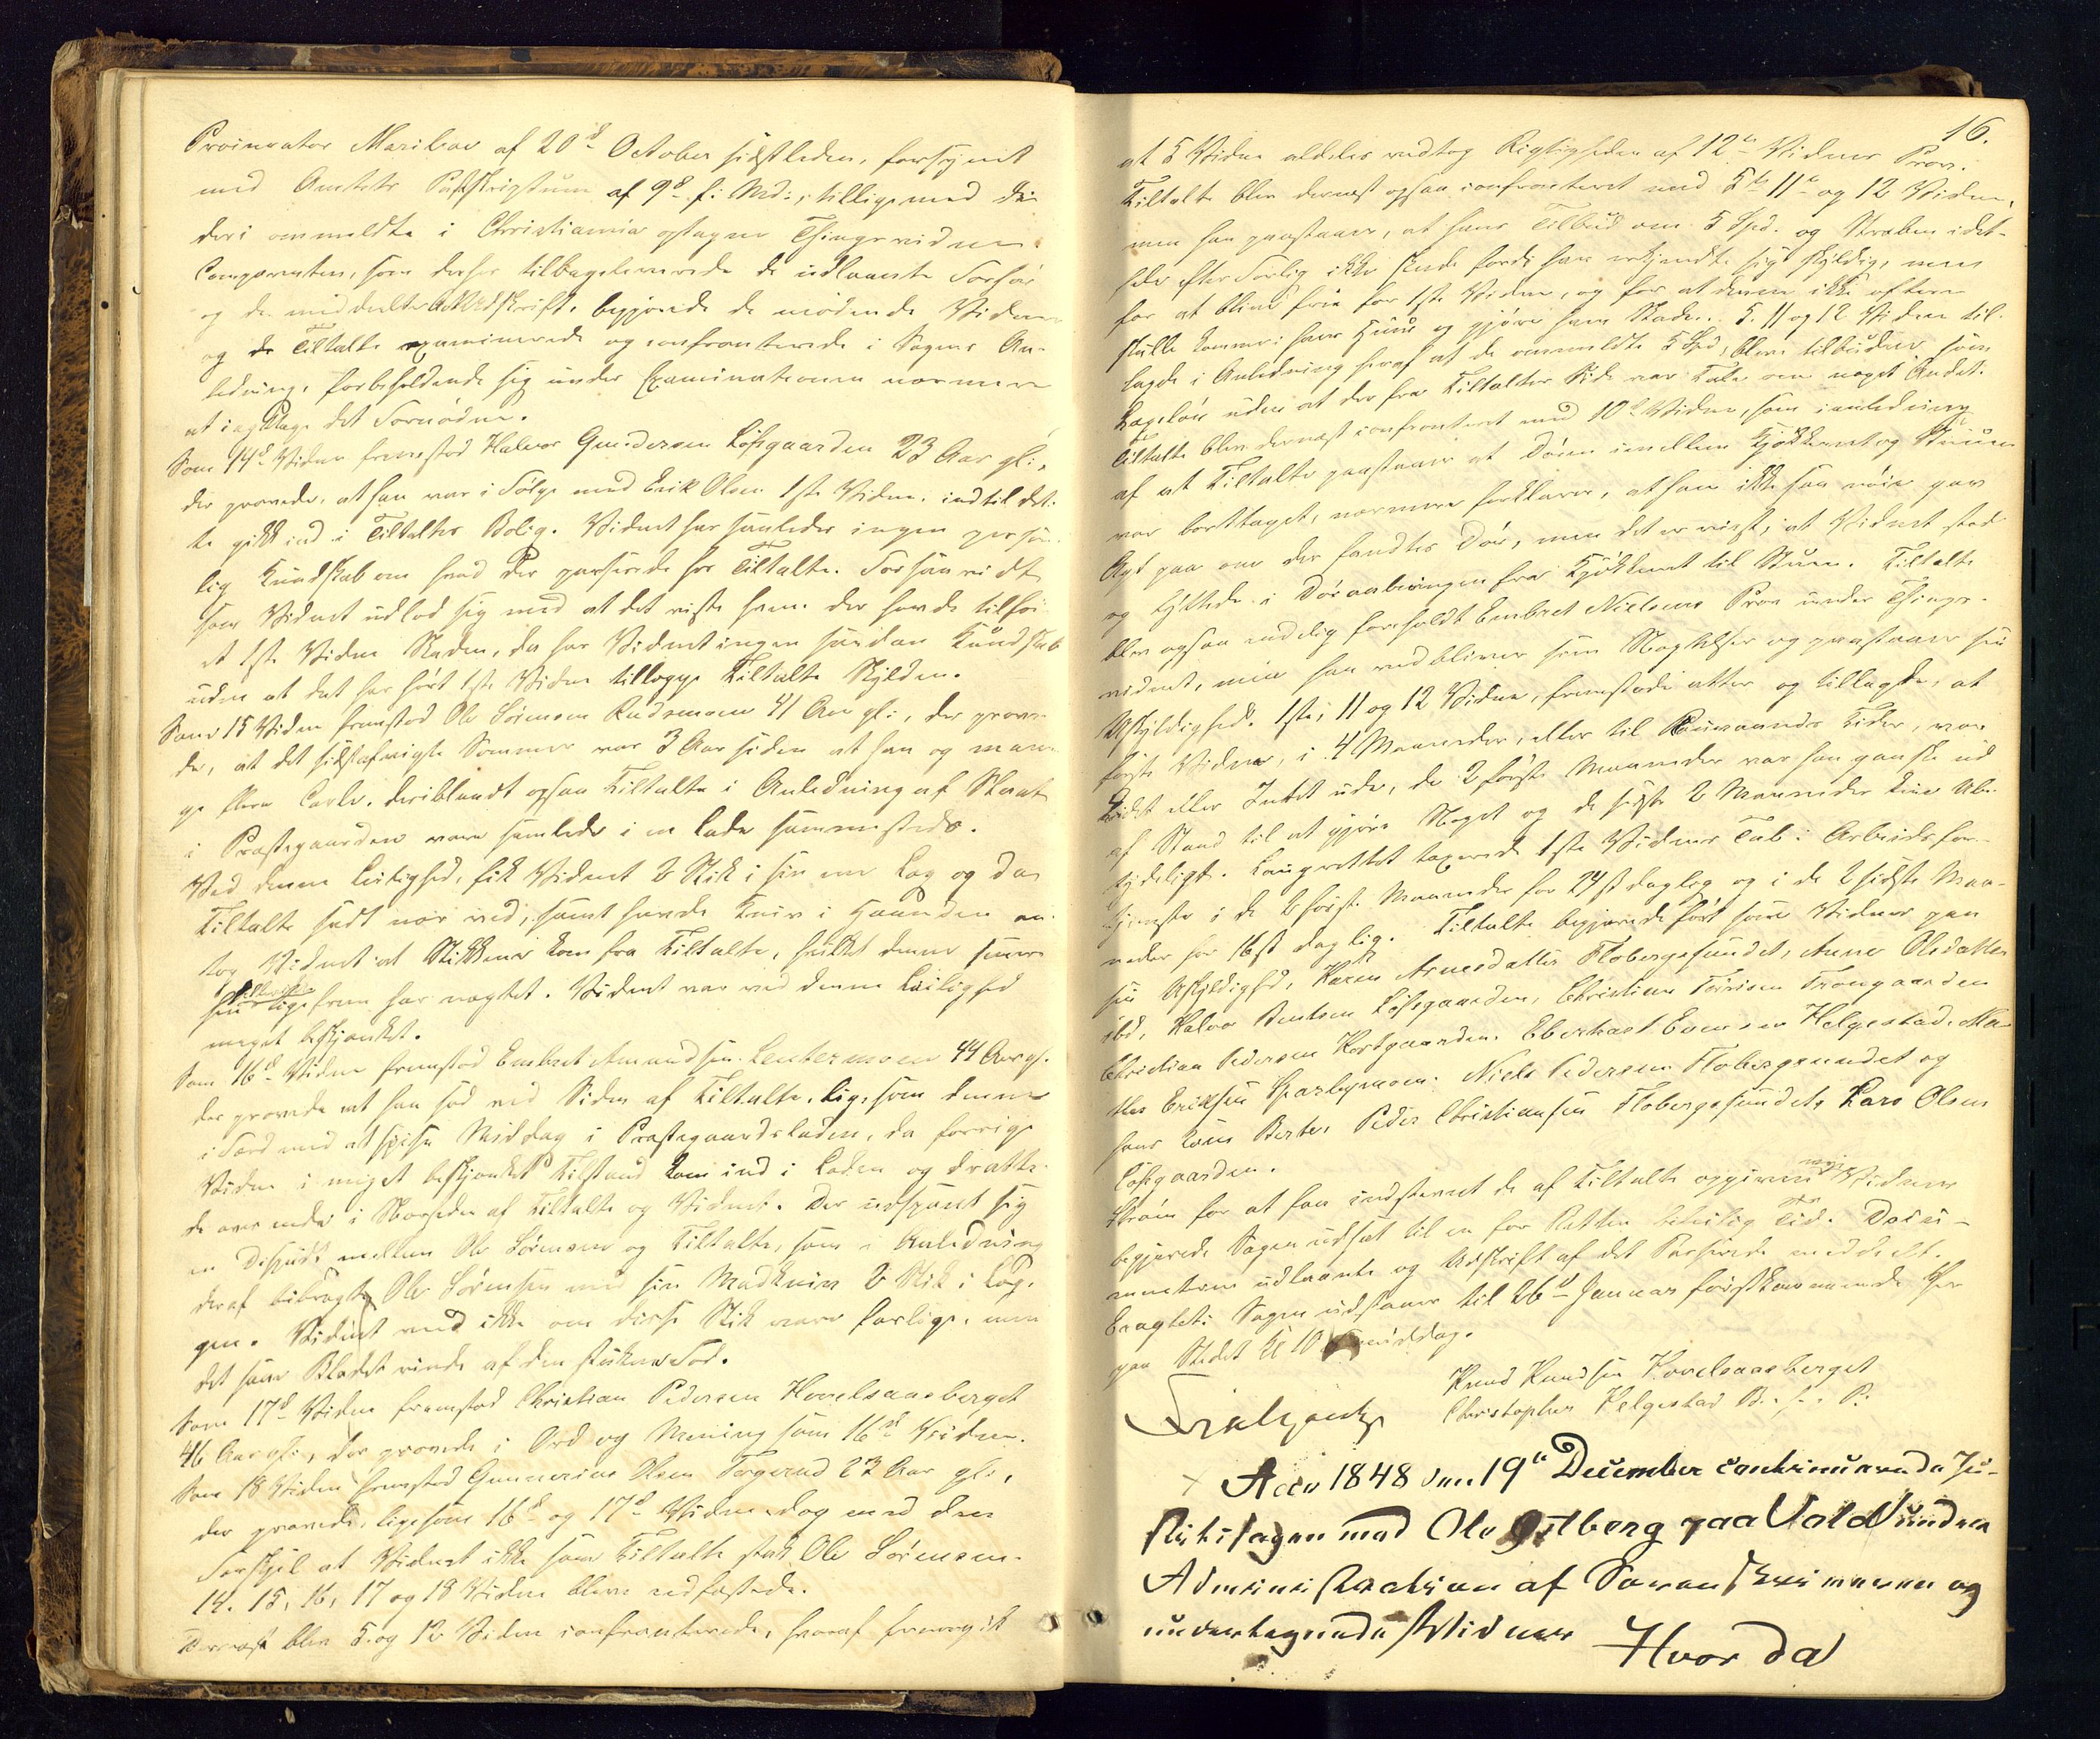 Procurator Maribae af 20d October sidstleden, forsynet
med Amtets Paaskriftum af 9d f: Md:, tilligemed de
deri ommeldte i Christiania optagne Thingsvidner
Comparenten, som derhos tilbageleverede de udlaante Forhør
og de meddeelte Udskrift, begjærede de mødende Vidner
og de Tiltalte examinerede og confronterede i Sagens An-
ledning, forbeholdende sig under Examinationen nærmere
at iagttage det Fornødne.
Som 14d Vidne fremstod Halvor Gundersen Løfsgaarden 23 Aar gl:,
der provede, at han var i Følge med Erik Olsen 1ste Vidne, indtil det-
te gik ind i Tiltaltes Bolig. Vidnet har saaledes ingen person-
lig Kundskab om hvad der passerede hos Tiltalte. Forsaavidt
som Vidnet udlod sig med at det vidste hvem der havde tilføi-
et 1ste Vidne Skaden, da har Vidnet ingen saadan Kundskab
uden at det har hørt 1ste Vidne tillægge Tiltalte Skylden.
Som 15 Vidne fremstod Ole Sørensen Rudsmoen 41 Aar gl:, der prove-
de, at det sidstafvigte Sommer var 3 Aar siden at han og man-
ge flere Karle, deriblandt ogsaa Tiltalte i Anledning af Skaat
i Præstegaarden vare samlede i en Lade sammesteds.
Ved denne Leilighed, fik Vidnet 2 Stik i sin ene Læg og da
Tiltalte sadt nær ved, samt havde Kniv i Haanden an-
tog Vidnet at Stikkene kom fra Tiltalte, hvilket denne senere
ligefrem har nægtet. Vidnet var ved denne Leilighed
meget beskjænket.
Som 16d Vidne fremstod Embret Amundsen Lentermoen 44 Aar gl.
der provede at han sad ved Siden af Tiltalte, ligesom denne
i Færd med at spise Middag i Præstegaardsladen, da forrige
Vidne i meget beskjænket Tilstand kom ind i Laden og dratte-
de over ende i Nærheden af Tiltalte og Vidnet. Der udspandt sig
en Disput mellem Ole Sørensen og Tiltalte, som i Anledning
deraf bibragte Ole Sørensen med sin Madkniv 2 Stik i Læg-
gen. Vidnet ved ikke om disse Stik vare farlige, men
det saae Blodet rinde af den stukne Fod.
Som 17d Vidne fremstod Christian Pedersen Hovelsaasberget
46 Aar gl:, der provede i Ord og Mening som 16de Vidne.
Som 18 Vidne fremstod Gunnerius Olsen Torgerud 23 Aar gl:,
der provede, ligesom 16d og 17d Vidne dog med den
Forskjel at Vidnet ikke saae Tiltalte stak Ole Sørensen.
14. 15, 16, 17 og 18 Vidne bleve edfæstede.
Dernæst blev 5. og 12 Vidne confronterede, hvoraf fremgik
16.
at 5 Vidne aldeles vedtog Rigtigheden af 12te Vidnes Prov.
Tiltalte blev dernæst ogsaa confronteret med 5te 11te og 12 Vidne,
men han paastaaer, at hans Tilbud om 5 Spd. og Straben idet-
hele efter Forlig ikke skede fordi han erkjendte sig skyldig, men
for at blive frie for 1ste Vidne, og for at denne ikke oftere
skulle komme i hans Huus og gjøre ham Skade. 5. 11 og 12 Vidne til-
lagde i Anledning heraf at de ommeldte 5 Spd, bleve tilbudne som
uden at der fra Tiltaltes Side var Tale om noget Andet.
Tiltalte blev dernæst confronteret med 10d Vidne, som i anledning
af at Tiltalte paastaaer at Døren imellem Kjøkkenet og Stuen
var borttaget, nærmere forklarer, at han ikke saa nøie gav
Agt paa om der fandtes Dør, men det er vist, at Vidnet stod
og lyttede i Døraabningen fra Kjøkkenet til Stuen. Tiltalte
blev ogsaa endelig foreholdt Embret Nielsens Prov under Things-
vidnet, men han vedbliver sin Nægtelse og paastaaer sin
Uskyldighed. 1ste, 11 og 12 Vidne, fremstode atter og tillagde, at
første Vidne, i 4 Maaneder, eller til Tider, var
lidet eller Intet ude, de 2 første Maaneder var han ganske ud
af Stand til at gjøre Noget og de sidste 2 Maaneder kun Ube-
tydeligt. Laugrettet taxerede 1ste Vidnes Tab i Arbeidsfor-
tjeneste i de 2 første Maaneder for 24 sk daglig og i de 2 sidste Maa-
neder for 16 sk daglig. Tiltalte begjærede ført som Vidner paa
sin Uskyldighed, Karen Arnesdatter Flobergsundet, Anne Olsdatter
ibd, Halvor Bentsen Løfsgaarden, Christian Tørrisen Trøngaarden
Christian Pedersen Hortgaarden, Eberhart Evensen Helgestad, Ma-
thes Eriksen Sparbymoen, Niels Pedersen Flobergsundet og
hans Kone Berte, Peder Christiansen Flobergssundet, Lars Olsen
Løfsgaarden.
Strøm for at faa indstevnet de af Tiltalte opgivne nye Vidner
begjærede Sagen udsat til en for Retten beleilig Tid. Docu-
menterne udlaante og Udskrift af det Passerede meddeelt.
Eragtet: Sagen udstaaer til 26d Januar førstkommende her
paa Stedet Kl 10 Formiddag.
Knud Knudsen Hovelsaasberget
Christopher Helgestad B.. f.. P:
× Anno 1848 den 19de December continueredes Ju-
stitssagen mod Ole Ostberg paa Volds under
Administration af Sorenskriveren og
undertegnede Vidner Hvor da